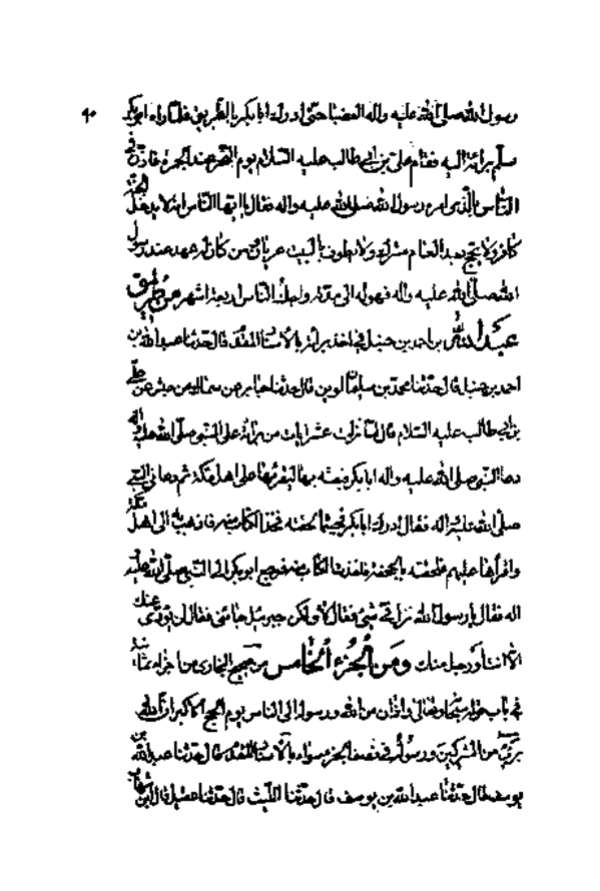 ٩٠
رسول الله صلى الله عليه واله العضبا حتى ادرك ابا بكر بالطريق فلما راه ابو بكر
سلم براءة اليه فقام علي بن ابي طالب عليه السلام يوم النحر عند الجمرة فاذن في
الناس بالذي امر رسول الله صلى الله عليه واله فقال يا ايها الناس انه لا يدخل الجنة
كافر ولا يحج بعد العام مشرك ولا يطوف بالبيت عريان ومن كان له عهد عند رسول
الله صلى الله عليه واله فهو له الى مدته واجل الناس اربعة اشهر من طريق
عبد الله بن احمد بن حنبل في اخذ براءة بالاسناد المتقدم قال حدثنا عبد الله بن
احمد بن حنبل قال حدثنا محمد بن سليمان لوين قال حدثنا محمد بن جابر عن سماك عن حنش عن علي
بن ابي طالب عليه السلام قال لما نزلت عشر ايات من براءة على النبي صلى الله عليه واله
دعا النبي صلى الله عليه واله ابا بكر فبعثه بها ليقرئها على اهل مكة ثم دعاني النبي
صلى الله عليه واله فقال ادرك ابا بكر فحيثما لحقته فخذ الكتاب منه فاذهب به الى اهل مكة
واقراها عليهم فلحقته بالجحفة فاخذت الكتاب منه فرجع ابو بكر الى النبي صلى الله عليه
اله فقال يا رسول الله نزل في شئ فقال لا ولكن جبرئيل جائني فقال لن يؤدي عنك
الا انت او رجل منك ومن الجزء الخامس من صحيح البخاري من اجزاء
في باب قوله سبحانه وتعالى واذان من الله ورسوله الى الناس يوم الحج الاكبر ان الله
برئ من المشركين ورسوله في نصف الجزء سواء بالاسناد المتقدم قال حدثنا عبد الله بن
يوسف قال حدثنا عبد الله بن يوسف قال حدثنا الليث قال حدثنا عقيل قال ابن شهاب